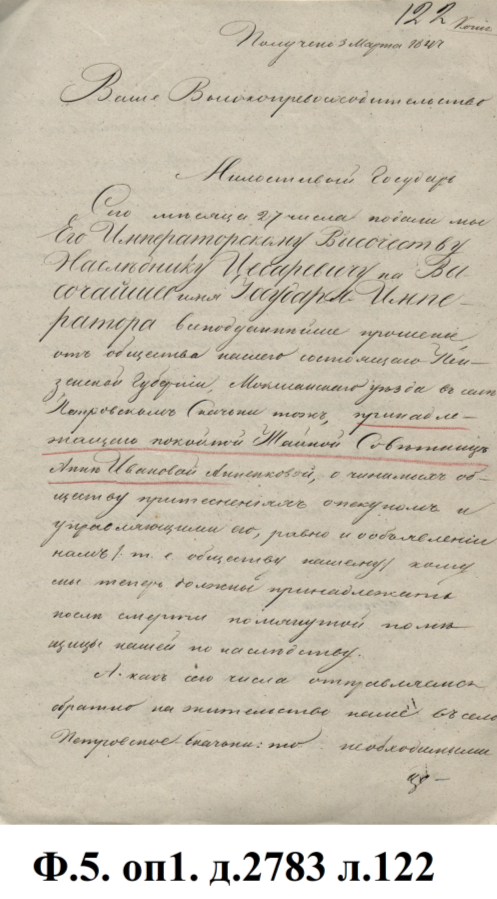 122
Копія
Получено 3 Марта 1840
Ваше Высокопревосходительство
Милостивый Государь
Сего мѣсяца 27 числа подали мы
Его Императорскому Высочеству
Наслѣднику Цесаревичу на Вы
сочайшее имя Государя Импе-
ратора всеподданнѣйше прошеніе
отъ общества нашего состоящаго Пен-
зенской Губерніи, Мокшанскаго уѣзда въ селѣ
Петровскомъ Скачки тожъ, принадле-
жащаго покойной Тайной Совѣтницѣ
Аннѣ Ивановой Анненковой, о чинимыхъ об-
ществу притесненіяхъ опекуномъ и
управляющими его, равно и объявленіи
намъ /: т. е. обществу нашему/ кому
мы теперь должны принадлежать
послѣ смерти помянутой помѣ
щицы нашей по наслѣдству.
А какъ сего числа отправляемся
обратно на жительство наше въ село
Петровское Скачки: то необходимыми
Ф.5. оп1. д.2783 л.122